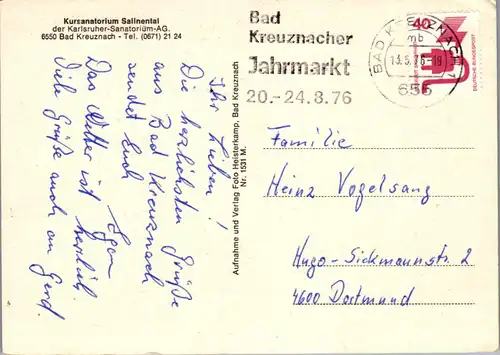 Kursanatorium Salinental
der Karlsruher-Sanatorium-AG.
6550 Bad Kreuznach - Tel. (0671) 21 24
Ihr Lieben!
Die herzlichsten Grüße
aus Bad Kreuznach
sendet Euch
Egon
Das Wetter ist herrlich.
Viele Grüße auch an Gerd.
Aufnahme und Verlag Foto Heisterkamp, Bad Kreuznach
Nr. 1531 M.
Bad
Kreuznacher
Jahrmarkt
20.-24.8.76
BAD KREUZNACH 1
mb
13.5.76-19
655
40
DEUTSCHE BUNDESPOST
Familie
Heinz Vogelsang
Hugo-Sickmannstr. 2
4600 Dortmund